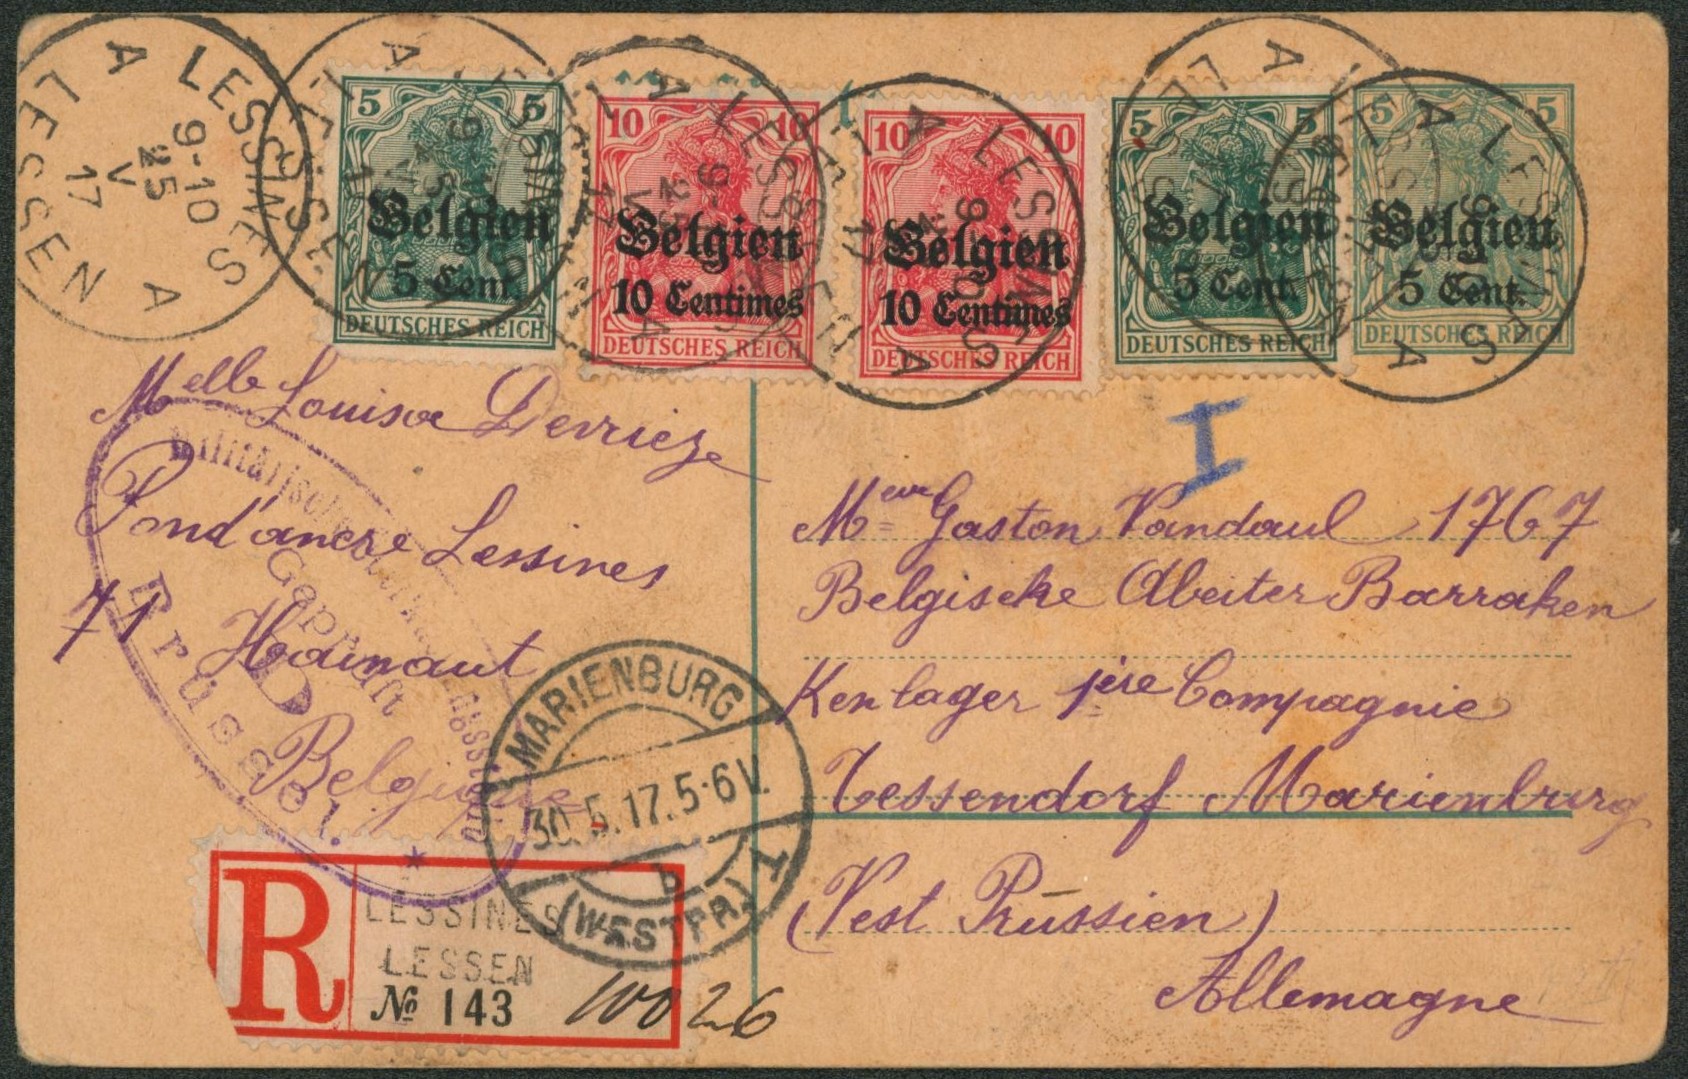 LESSINES
A
9-10
25
V
17
S
LESSEN
A
5 5
Belgien
5 Cent.
DEUTSCHES REICH
10 10
Belgien
10 Centimes
DEUTSCHES REICH
10 10
Belgien
10 Centimes
DEUTSCHES REICH
5 5
Belgien
5 Cent.
DEUTSCHES REICH
5 5
Belgien
5 Cent.
DEUTSCHES REICH
I
Melle Louisa Derrieze
Pond'ancre Lessines
71 Hainaut
Belgique
Geprüft
Brüssel
MARIENBURG
30.5.17.5-6V.
b
(WESTPR.) 1
R
LESSINES
LESSEN
№ 143
10026
Meur Gaston Vandaul 1767
Belgische Abeiter Barraken
Kenlager 1ière Compagnie
Tessendorf Marienburg
(Vest Prüssien)
Allemagne